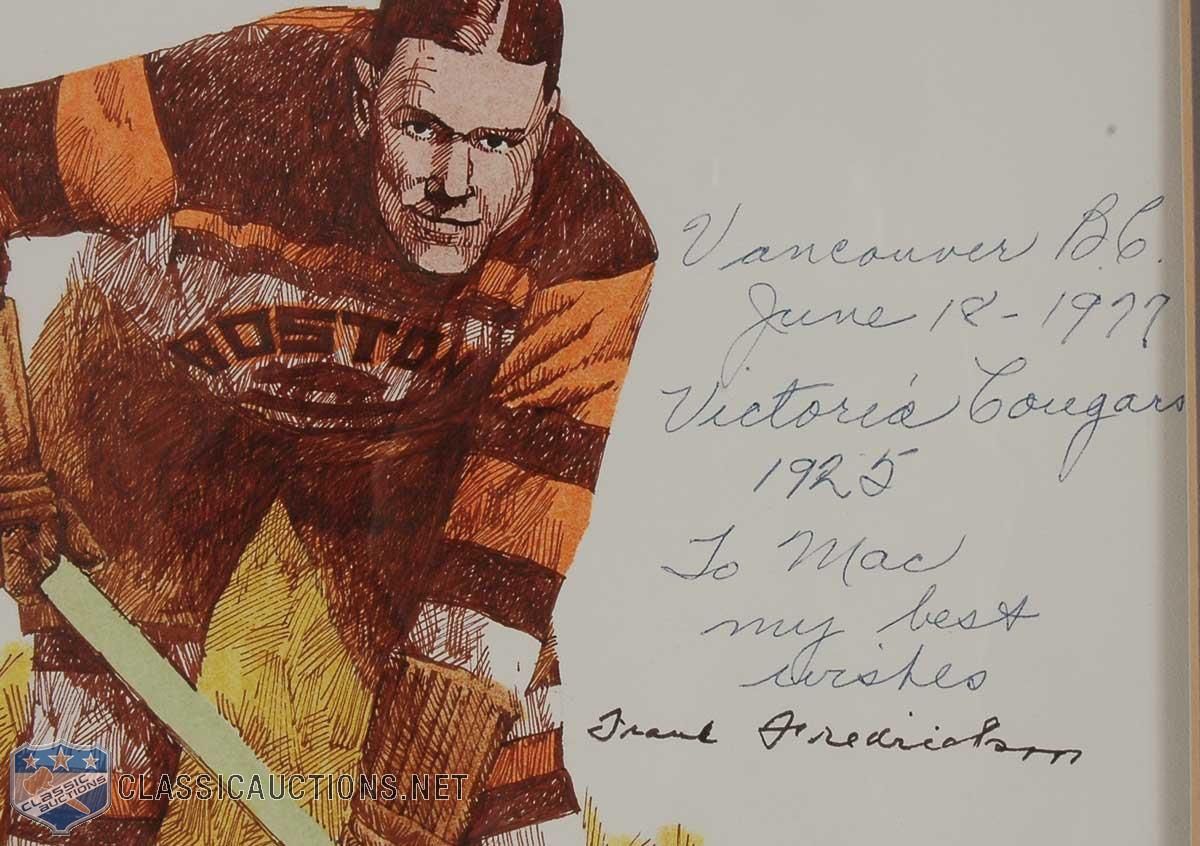 BOSTON
Vancouver B.C.
June 18 - 1977
Victoria Cougars
1925
To Mac
my best
wishes
Frank Fredrickson
CLASSIC AUCTIONS
CLASSICAUCTIONS.NET